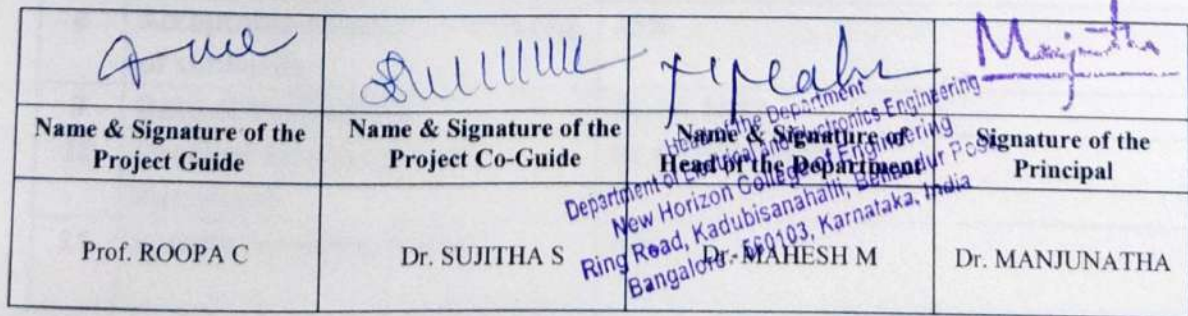 Manjunatha
Name & Signature of the
Project Guide
Name & Signature of the
Project Co-Guide
Name & Signature of
Head of the Department
Signature of the
Principal
Prof. ROOPA C
Dr. SUJITHA S
Dr. MAHESH M
Dr. MANJUNATHA
Head of the Department
Department of Electrical and Electronics Engineering
New Horizon College of Engineering
Ring Road, Kadubisanahalli, Bellandur Post
Bangalore - 560103, Karnataka, India